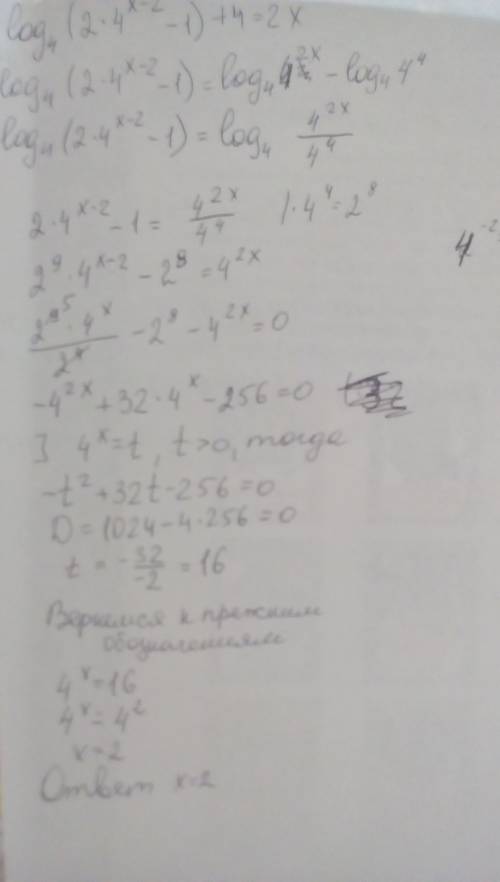 log₄(2·4^(x-2) -1)+4=2x
log₄(2·4^(x-2) -1)=log₄4^(2x) - log₄4⁴
log₄(2·4^(x-2) -1)=log₄ 4^(2x)/4⁴
2·4^(x-2) -1= 4^(2x)/4⁴ /·4⁴=2⁸
4^(-2)
2⁹·4^(x-2) -2⁸=4^(2x)
2⁵·4^x/2⁴ -2⁸-4^(2x)=0
-4^(2x)+32·4^x-256=0
] 4^x=t, t>0, тогда
-t²+32t-256=0
D=1024-4·256=0
t=-32/-2=16
Вернимся к прежним
обозначениям
4^x=16
4^x=4²
x=2
Ответ x=2